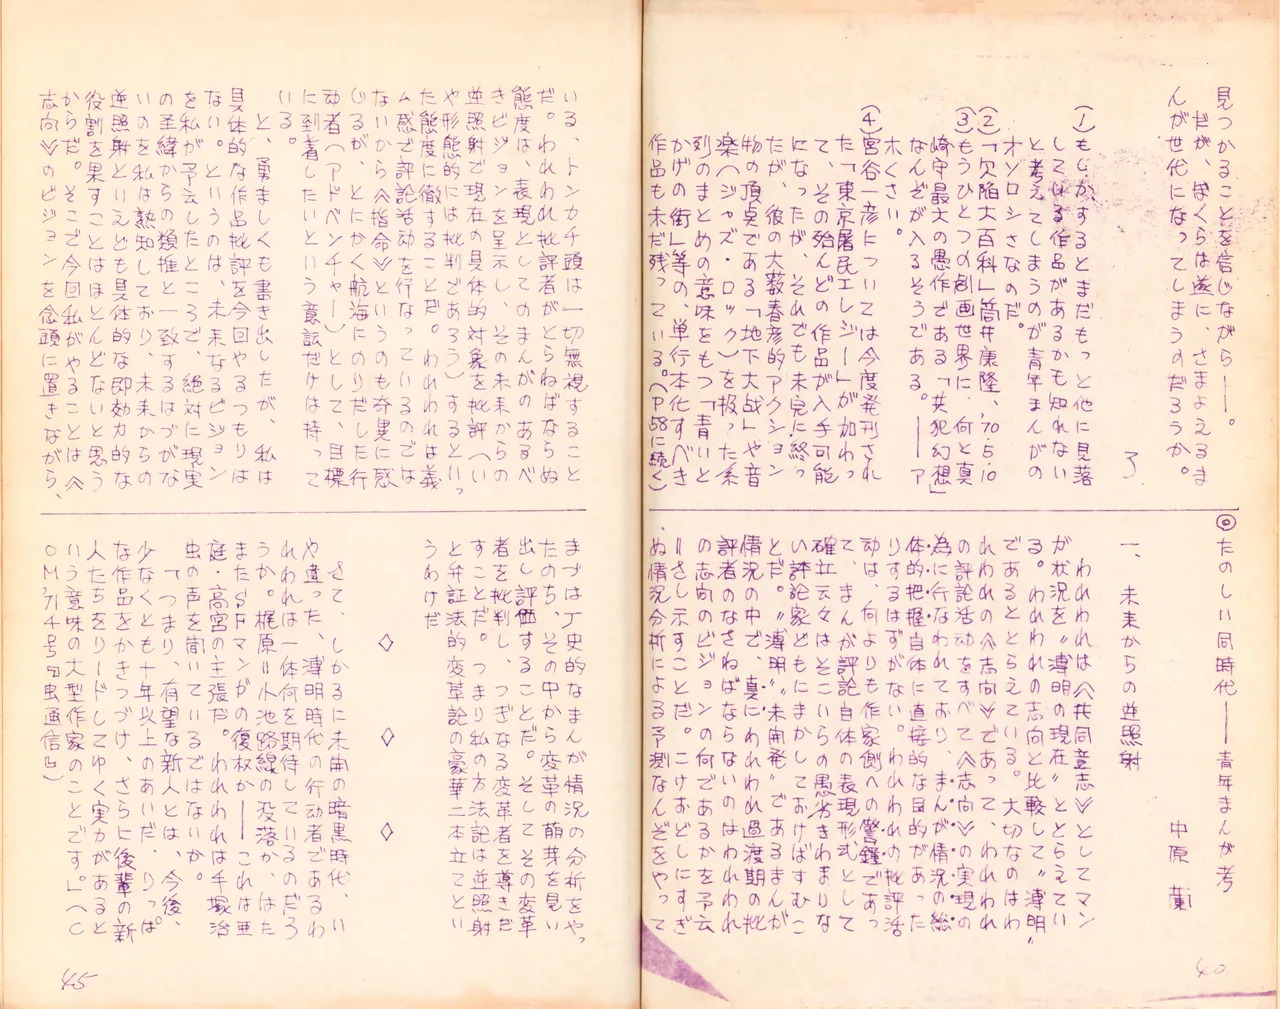 見つかることを信じながら——。
だが、ぼくらは遂に、さまよえるま
んが世代になってしまうのだろうか。
了
(1)もしかするとまだもっと他に見落
している作品があるかも知れない
と考えてしまうのが青年まんがの
オソロシさなのだ。
(2)「欠陥大百科」筒井康隆、'70.5.10
(3)もうひとつの劇画世界に、何と真
崎守最大の愚作である「共犯幻想」
なんぞが入るそうである。——ア
ホくさい。
(4)宮谷一彦については今度発刊され
た「東京屠民エレジー」が加わっ
て、その殆んどの作品が入手可能
になったが、それでも未完に終っ
たが、彼の大藪春彦的アクション
物の頂点である「地下大戦」や音
楽(ジャズ・ロック)を扱った系
列のまとめの意味をもつ「青いと
かげの街」等の、単行本化すべき
作品も未だ残っている。(P58に続く)
◎たのしい同時代——青年まんが考
中原 蘭
一、未来からの逆照射
われわれは〈共同意志〉としてマン
が状況を〝薄明の現在〟ととらえてい
る。われわれの志向と比較して〝薄明〟
であるととらえている。大切なのはわ
れわれの〈志向〉であって、われわれ
の評論活動をすべて〈志向〉の実現の
為に行なわれており、まんが情況の総
体的把握自体に直接的な目的があった
りするはずがない。われわれの批評活
動は、何よりも作家側への警鐘であっ
て、まんが評論自体の表現形式として
確立云々はそこいらの愚劣きわまりな
い評論家どもにまかしておけばすむこ
とだ。〝薄明〟〝未開発〟であるまんが
情況の中で、真にわれわれ過渡期の批
評者のなさねばならないのはわれわれ
の志向のビジョンの何であるかを予言
=さし示すことだ。こけおどしにすぎ
ぬ情況分析による予測なんぞをやって
いる、トンカチ頭は一切無視すること
だ。われわれ批評者がとらねばならぬ
態度は、表現としてのまんがのあるべ
きビジョンを呈示し、その未来からの
逆照射で現在の具体的対象を批評(い
や形態的には批判であろう)するといっ
た態度に徹することだ。われわれは義
ム感で評論活動を行なっているのでは
ないから〈指命〉というのも奇異に感
じるが、とにかく航海にのりだした行
動者(アドベンチャー)として、目標
に到着したいという意識だけは持って
いる。
と、勇ましくも書き出したが、私は
具体的な作品批評を今回やるつもりは
ない。というのは、未来なるビジョン
を私が予云したところで、絶対に現実
の圣緯からの類推と一致するはづがな
いのを私は熟知しており、未来からの
逆照射といえども具体的な即効力的な
役割を果すことはほとんどないと思う
からだ。そこで今回私がやることは〈
志向〉のビジョンを念頭に置きながら、
まづは丁史的なまんが情況の分析をやっ
たのち、その中から変革の萌芽を見い
出し評価することだ。そしてその変革
者を批判し、つぎなる変革者を導きだ
すことだ。つまり私の方法論は逆照射
と弁証法的変革論の豪華二本立てとい
うわけだ
◇ ◇ ◇
さて、しかるに未開の暗黒時代、い
や違った、薄明時代の行動者であるわ
れわれは一体何を期待しているのだろ
うか。梶原=小池路線の没落か、はた
またSFマンガの復权か——これは亜
庭・高宮の主張だ。われわれは手塚治
虫の声を聞いているではないか。
「つまり、有望な新人とは、今後、
少なくとも十年以上のあいだ、りっぱ
な作品をかきつづけ、さらに後輩の新
人たちをリードしてゆく実力があると
いう意味の大型作家のことです。」(C
OM'71/4号 虫通信)
45
40